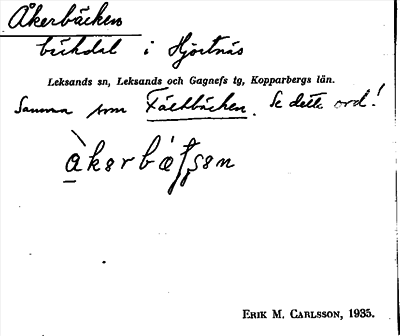 Åkerbäcken
bäckdal i Hjortnäs
Leksands sn, Leksands och Gagnefs tg, Kopparbergs län.
Samma som Fältbäcken. Se detta ord!
ERIK M. CARLSSON, 1935.